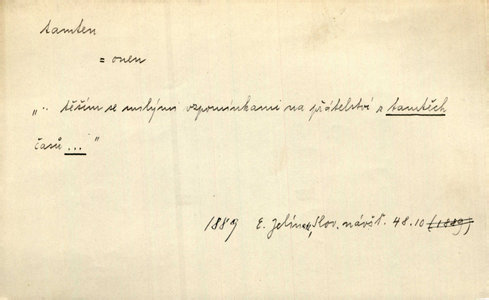 tamten
= onen
„.. těším se milými vzpomínkami na přátelství z tamtěch
časů ..."
1889 E. Jelínek, Slov. návšt. 48.10 (1889)